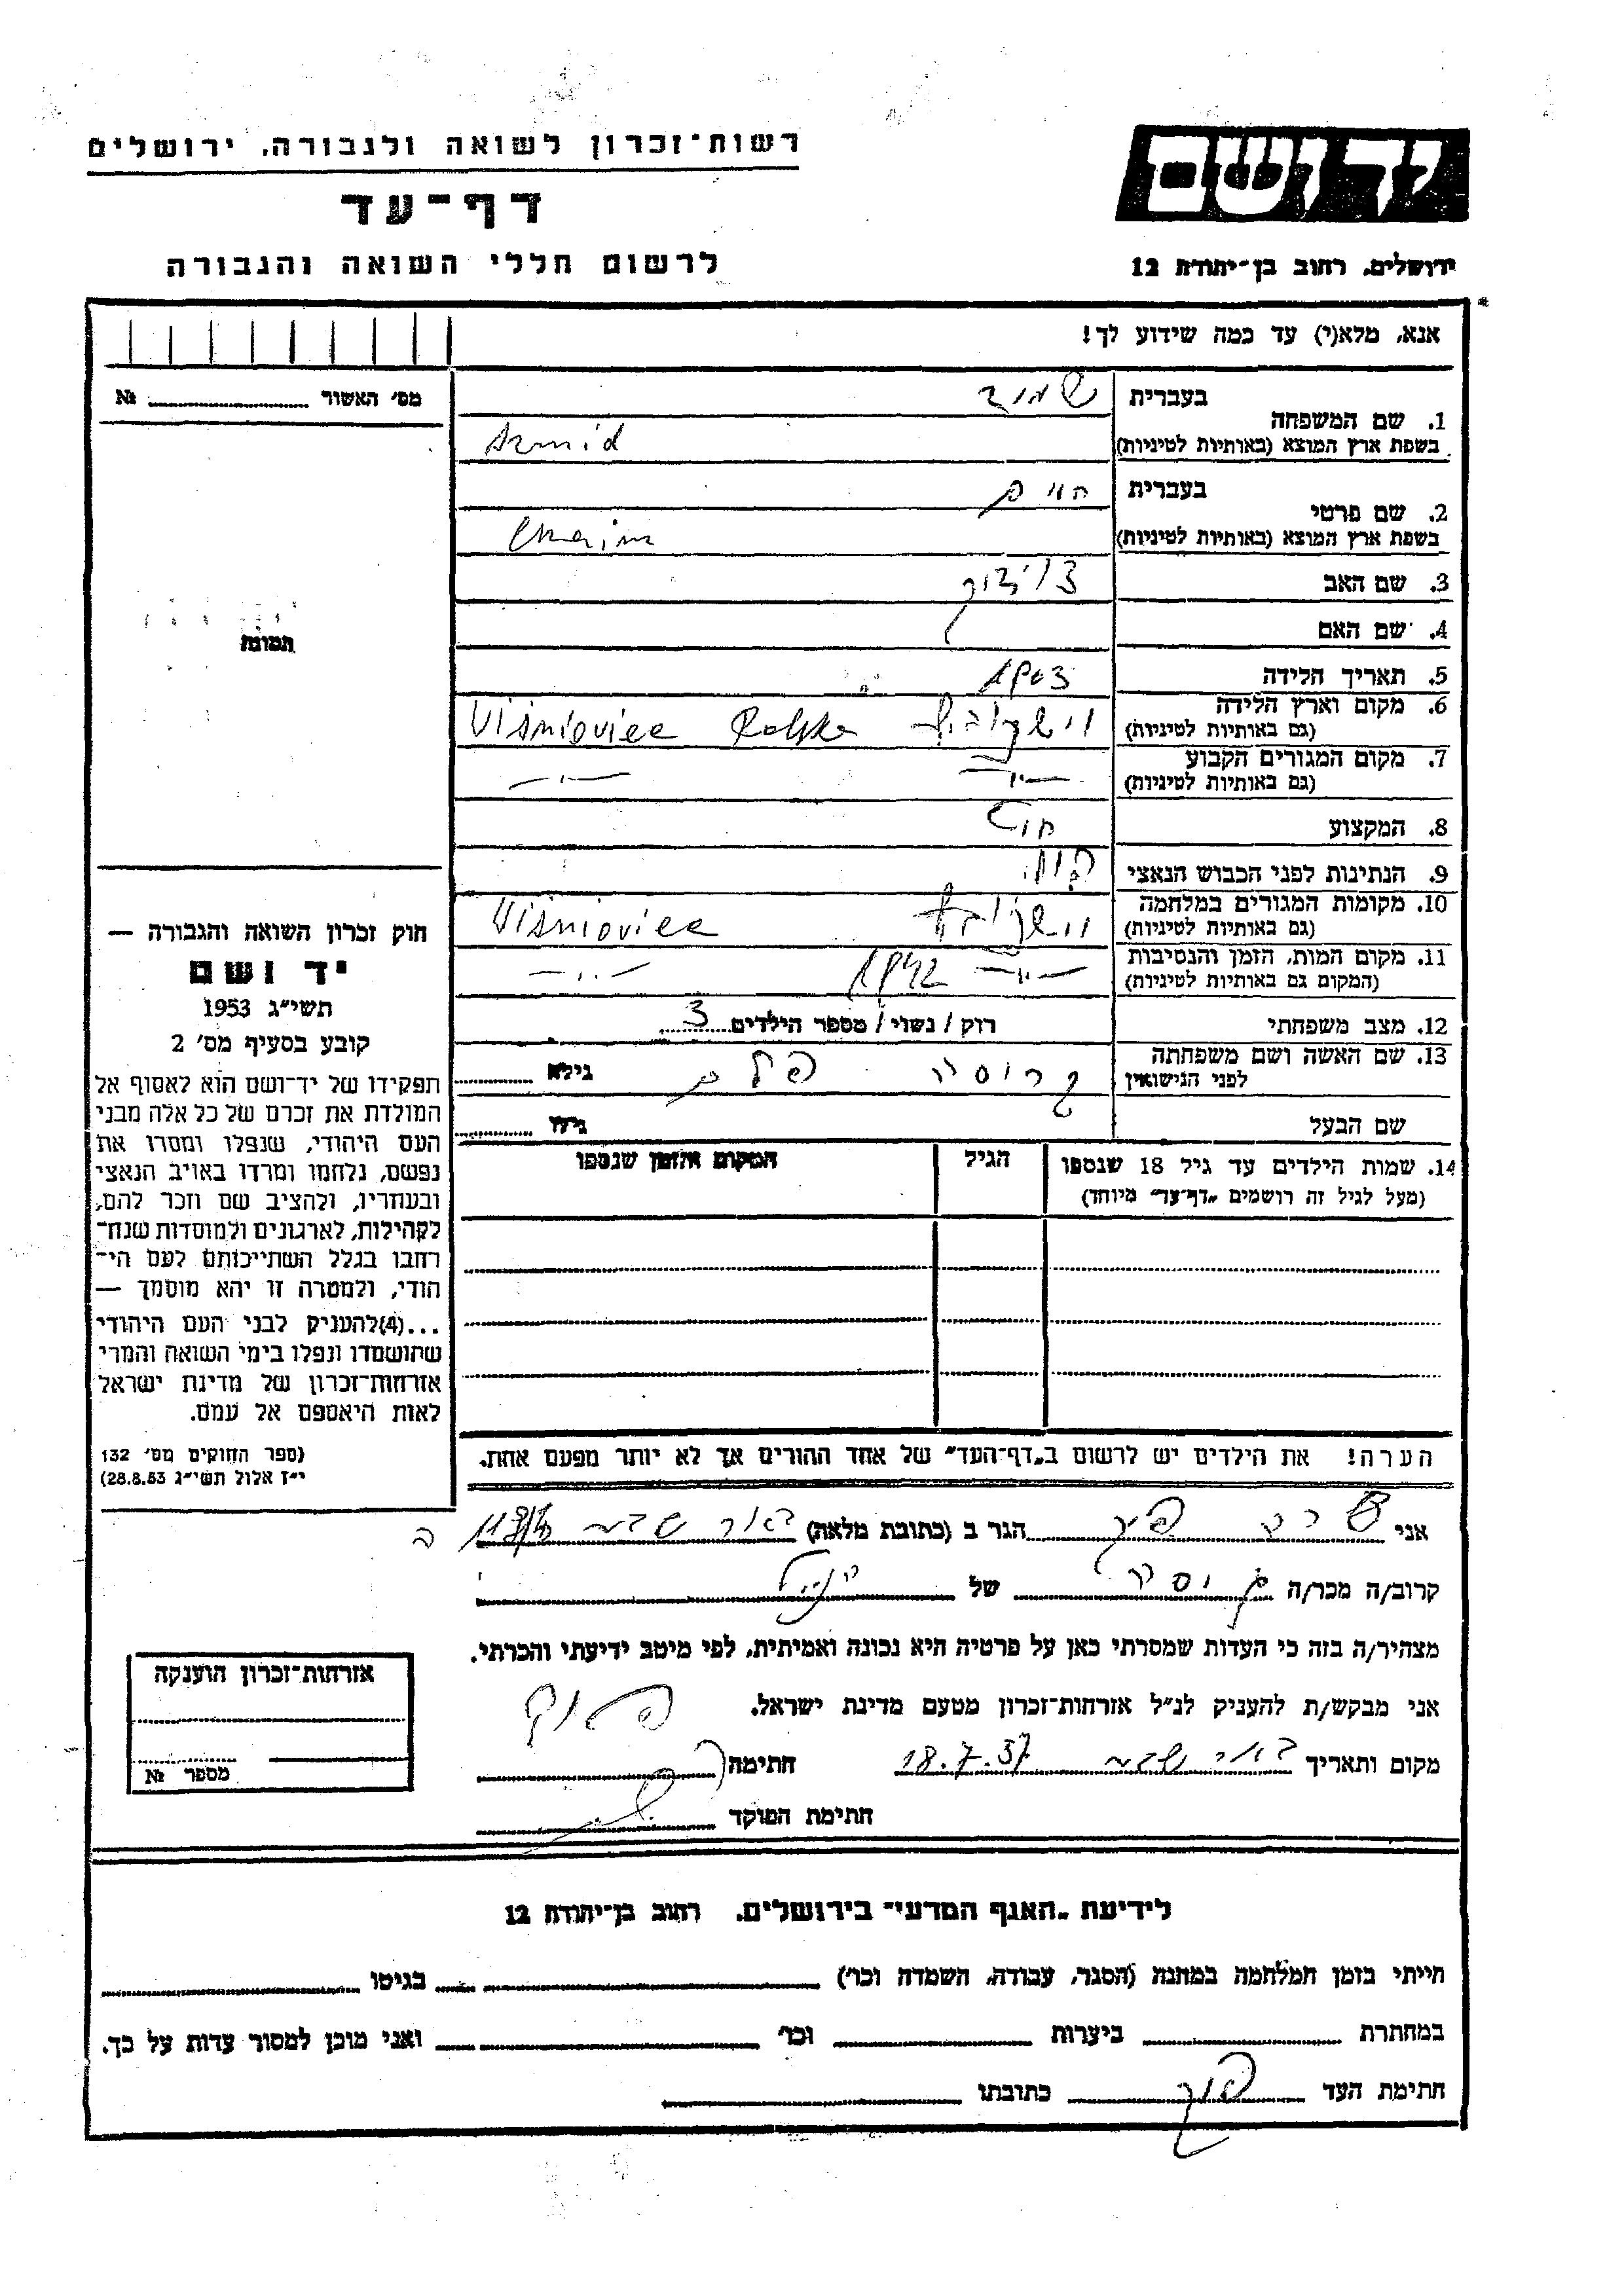 רשות־זכרון לשואה ולגבורה, ירושלים
דף־עד
לרשום חללי השואה והגבורה
יד ושם
ירושלים, רחוב בן־יהודה 12
אנא, מלא(י) עד כמה שידוע לך!
מס׳ האשור № 
תמונה
1. שם המשפחה
בעברית
בשפת ארץ המוצא (באותיות לטיניות) Szmid
2. שם פרטי
בעברית חיים
בשפת ארץ המוצא (באותיות לטיניות) Chaim
3. שם האב
4. שם האם
5. תאריך הלידה 1903
6. מקום וארץ הלידה
(גם באותיות לטיניות) Viśnioviec Polska
7. מקום המגורים הקבוע
(גם באותיות לטיניות) —״— —״—
8. המקצוע
9. הנתינות לפני הכבוש הנאצי
10. מקומות המגורים במלחמה
(גם באותיות לטיניות) Viśnioviec
11. מקום המות, הזמן והנסיבות
(המקום גם באותיות לטיניות) —״— 1942 —״—
12. מצב משפחתי רוק / נשוי / מספר הילדים 3
13. שם האשה ושם משפחתה
לפני הנישואין גילא
שם הבעל גילו
14. שמות הילדים עד גיל 18 שנספו
(מעל לגיל זה רושמים „דף־עד״ מיוחד)
הגיל
המקום והזמן שנספו
הערה! את הילדים יש לרשום ב„דף־העד״ של אחד ההורים אך לא יותר מפעם אחת.
חוק זכרון השואה והגבורה —
יד ושם
תשי״ג 1953
קובע בסעיף מס׳ 2
תפקידו של יד־ושם הוא לאסוף אל
המולדת את זכרם של כל אלה מבני
העם היהודי, שנפלו ומסרו את
נפשם, נלחמו ומרדו באויב הנאצי
ובעוזריו, ולהציב שם וזכר להם,
לקהילות, לארגונים ולמוסדות שנח־
רחבו בגלל השתייכותם לעם הי־
הודי, ולמטרה זו יהא מוסמך —
...(4)להעניק לבני העם היהודי
שהושמדו ונפלו בימי השואה והמרי
אזרחות־זכרון של מדינת ישראל
לאות היאספם אל עמם.
(ספר החוקים מס׳ 132
י״ז אלול תשי״ג 28.8.53)
אני הגר ב (כתובת מלאה) באר שבע
קרוב/ה מכר/ה של
מצהיר/ה בזה כי העדות שמסרתי כאן על פרטיה היא נכונה ואמיתית, לפי מיטב ידיעתי והכרתי.
אני מבקש/ת להעניק לנ״ל אזרחות־זכרון מטעם מדינת ישראל.
מקום ותאריך באר שבע 18.7.57 חתימה
חתימת הפוקד
אזרחות־זכרון הוענקה
מספר №
לידיעת „האגף המדעי״ בירושלים, רחוב בן־יהודה 12
הייתי בזמן המלחמה במחנה (הסגר, עבודה, השמדה וכו׳) בגיטו
במחתרת ביערות וכו׳ ואני מוכן למסור עדות על כך.
חתימת העד כתובתו